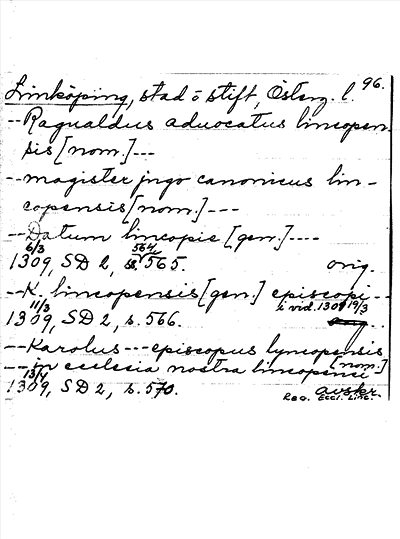 96.
Linköping, stad o stift, Österg. l.
-- Ragualdus aduocatus lincopen
sis [nom.] ---
-- magister jngo canonicus lin-
copensis [nom.] ---
-- Datum lincopie [gen.] ----
6/3 564
1309, SD 2, s. 565. orig.
-- K. lincopensis [gen.] episcopi --
11/3 i vid. 1309 19/3
1309, SD 2, s. 566.
-- Karolus --- episcopus lyncopensis
[nom.]
-- jn ecclesia nostra lincopensi
13/4
1309, SD 2, s. 570. avskr.
Reg. Eccl. Linc.